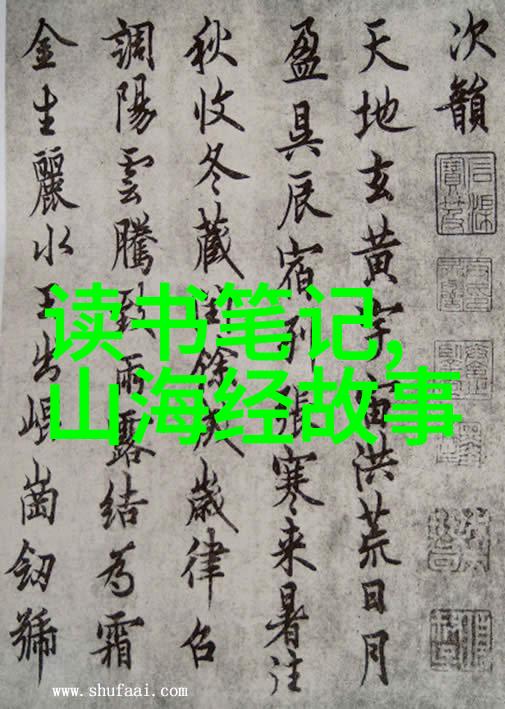 次韻
天地玄黄宇宙洪荒日月
盈昃辰宿列張寒来暑往
秋收冬藏閏餘成歲律召
調陽雲騰致雨露結為霜
金生麗水玉出崐崗劒號
读书笔记,
山海经故事
www.shufaai.com